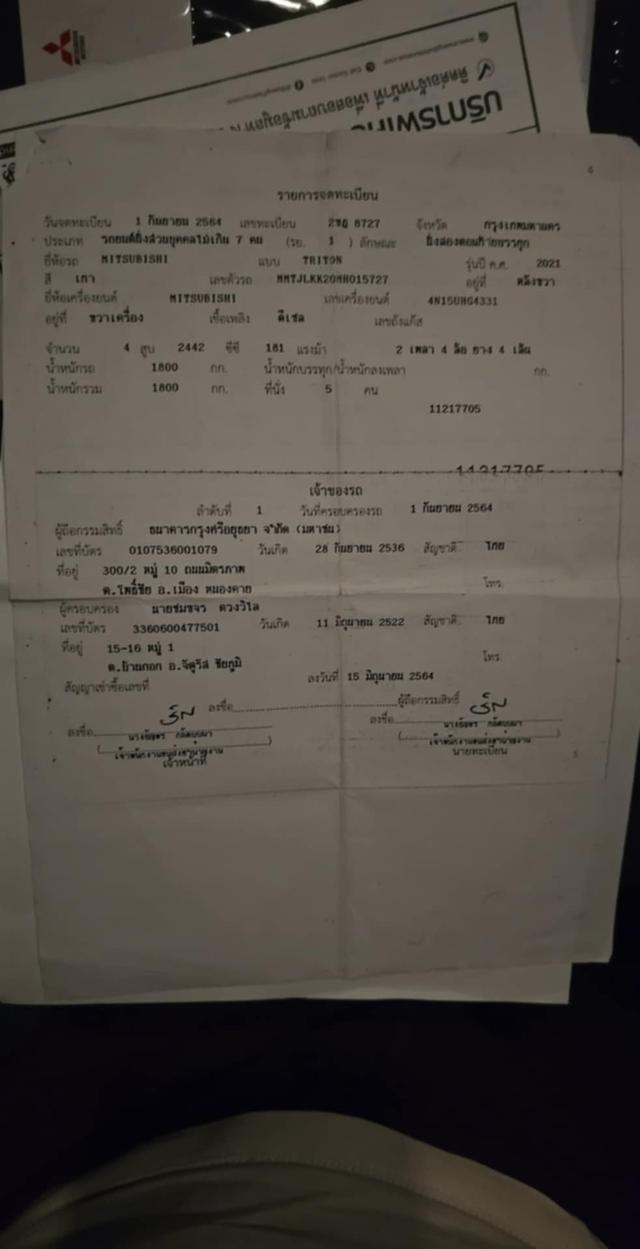 บริการพิเศษ
MITSUBISHI
6
รายการจดทะเบียน
วันจดทะเบียน 1 กันยายน 2564 เลขทะเบียน 2ขฎ 6727 จังหวัด กรุงเทพมหานคร
ประเภท รถยนต์นั่งส่วนบุคคลไม่เกิน 7 คน (รย. 1 ) ลักษณะ นั่งสองตอนท้ายบรรทุก
ยี่ห้อรถ MITSUBISHI แบบ TRITON รุ่นปี ค.ศ. 2021
สี เทา เลขตัวรถ MMTJLKK20MH015727 อยู่ที่
ยี่ห้อเครื่องยนต์ MITSUBISHI เลขเครื่องยนต์ 4N15UHG4331
อยู่ที่ ขวาเครื่อง เชื้อเพลิง ดีเซล เลขถังแก๊ส
จำนวน 4 สูบ 2442 ซีซี 181 แรงม้า 2 เพลา 4 ล้อ ยาง 4 เส้น
น้ำหนักรถ 1800 กก. น้ำหนักบรรทุก/น้ำหนักลงเพลา กก.
น้ำหนักรวม 1800 กก. ที่นั่ง 5 คน
11217705
11217705
เจ้าของรถ
ลำดับที่ 1 วันที่ครอบครองรถ 1 กันยายน 2564
ผู้ถือกรรมสิทธิ์ ธนาคารกรุงศรีอยุธยา จำกัด (มหาชน)
เลขที่บัตร 0107536001079 วันเกิด 28 กันยายน 2536 สัญชาติ ไทย
ที่อยู่ 300/2 หมู่ 10 ถนนมิตรภาพ
ต.โพธิ์ชัย อ.เมือง หนองคาย โทร.
ผู้ครอบครอง นายชมชจร ดวงวิไล
เลขที่บัตร 3360600477501 วันเกิด 11 มิถุนายน 2522 สัญชาติ ไทย
ที่อยู่ 15-16 หมู่ 1
ต.บ้านกอก อ.จัตุรัส ชัยภูมิ โทร.
สัญญาเช่าซื้อเลขที่ ลงวันที่ 15 มิถุนายน 2564
ลงชื่อ ผู้ถือกรรมสิทธิ์
ลงชื่อ ลงชื่อ
เจ้าพนักงานขนส่งชำนาญงาน เจ้าพนักงานขนส่งชำนาญงาน
เจ้าหน้าที่ นายทะเบียน
5